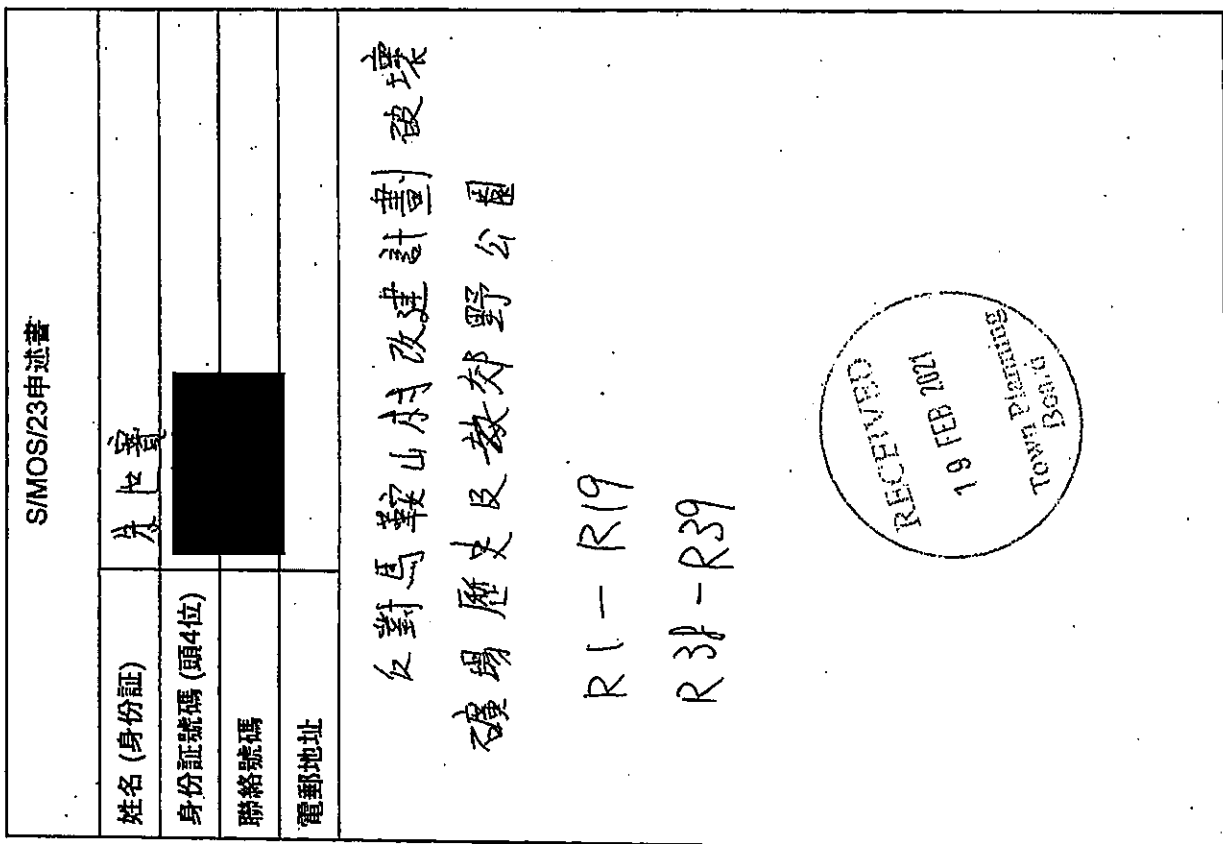 S/MOS/23申述書
姓名 (身份証)
身份証號碼 (頭4位)
聯絡號碼
電郵地址
反對馬鞍山村改建計劃破壞
礦場歷史及教郊野公園
R1 - R19
R38 - R39
RECEIVED
19 FEB 2021
Town Planning
Board